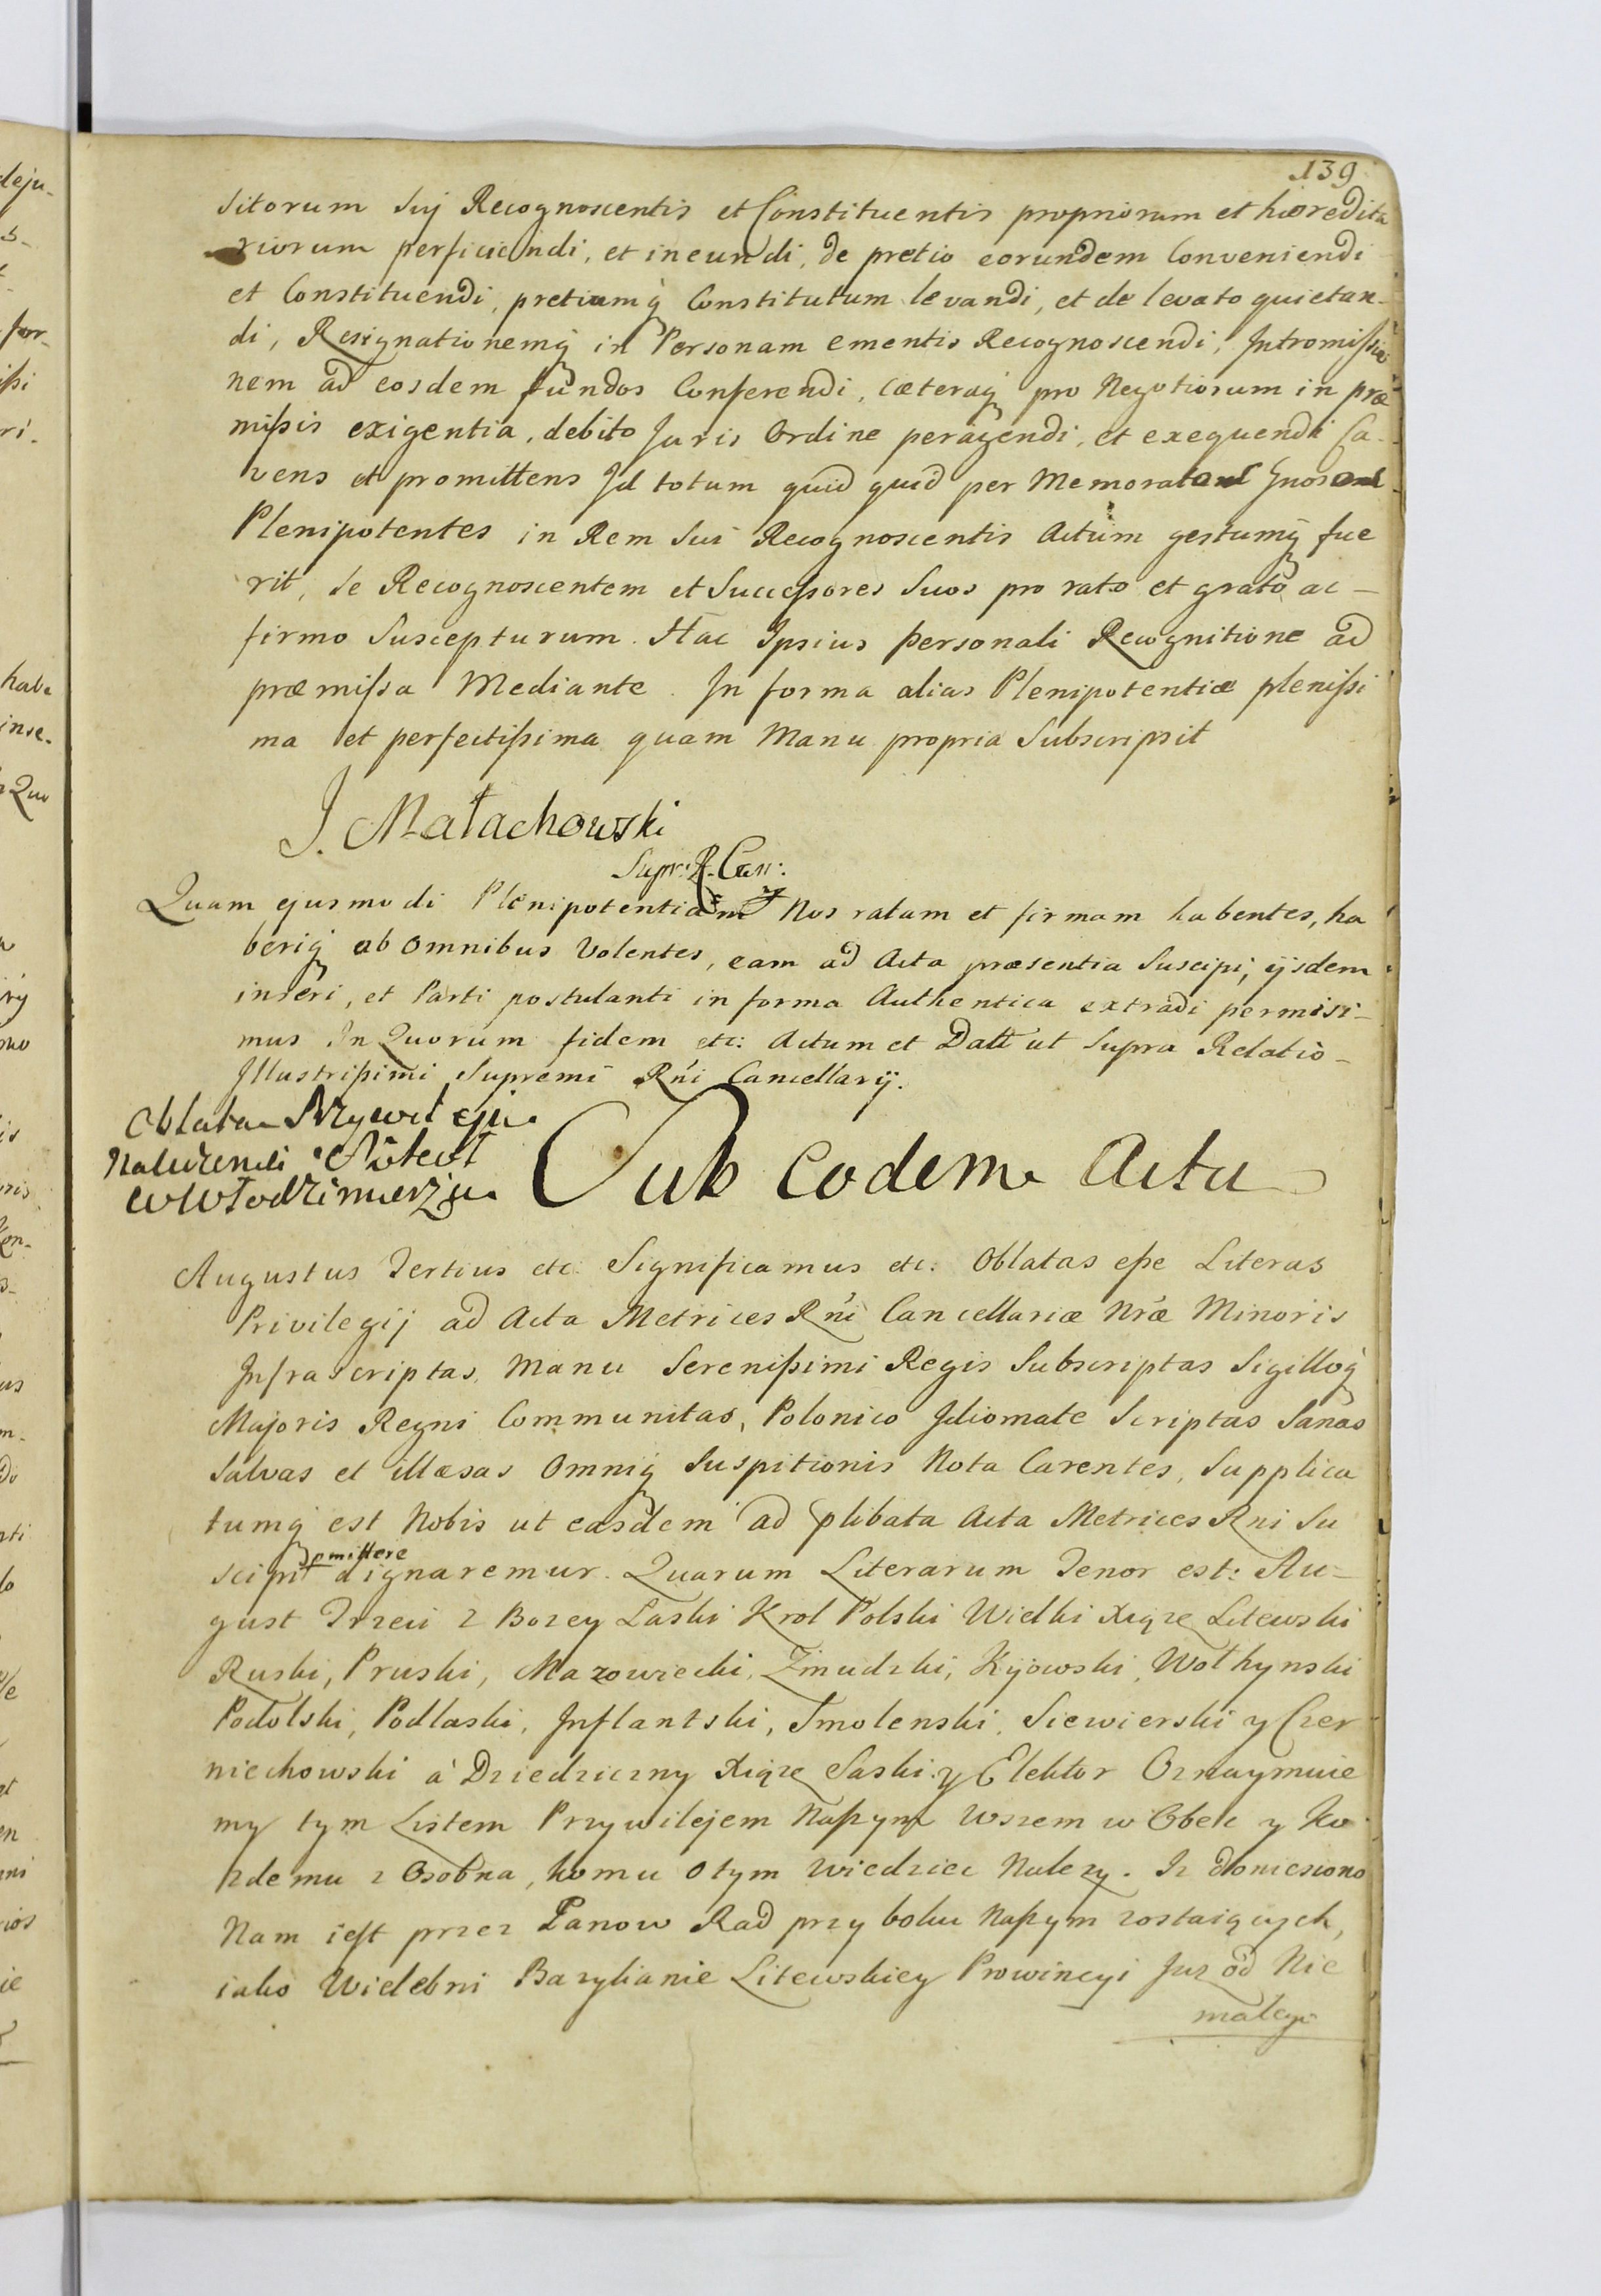 139
sitorum sui Recognoscentis et Constituentis propriorum et hæredita
riorum perficiendi, et ineundi, de pretio eorundem Conveniendi
et Constituendi, pretiumq Constitutum levandi, et de levato quietan-
di, Resignationemq in Personam ementis Recognoscendi, Intromissio
nem ad eosdem fundos Conferendi, cæteraq pro Negotiorum in præ
missis exigentia, debito Juris Ordine peragendi, et exequendi Ca-
vens et promittens Id totum quid quid per Memorat Gnos
Plenipotentes in Rem sui Recognoscentis Actum gestumq fue
rit, se Recognoscentem et Successores Suos pro rato et grato ac-
firmo Suscepturum. Hac Ipsius personali Recognitione ad
præmissa Mediante. In forma alias Plenipotentiæ plenissi
ma et perfectissima quam Manu propria Subscripsit
J. Małachowski
Supr: R. Can:
Quam ejusmodi Plenipotentiam Nos ratam et firmam habentes, ha
beriq ab Omnibus Volentes, eam ad Acta præsentia Suscipi, ijsdem
inseri, et Parti postulanti in forma Authentica extradi permisi-
mus In Quorum fidem etc: Actum et Datt ut Supra Relatio-
Illustrissimi Supremi Rni Cancellarij.
Oblata Przywileju
w Włodzimierzu
Sub Eodem Actu
Augustus Tertius etc: Significamus etc: Oblatas esse Literas
Privilegij ad Acta Metrices Rni Cancellariæ Nræ Minoris
Infrascriptas, Manu Serenissimi Regis Subscriptas Sigilloq
Majoris Regni Communitas, Polonico Idiomate Scriptas Sanas
Salvas et illæsas Omniq Suspitionis Nota Carentes, Supplica
tumq est Nobis ut easdem ad plibata Acta Metrices Rni Su
pmittere
scipi dignaremur. Quarum Literarum Tenor est: Au-
gust Trzeci z Bozey Laski Krol Polski Wielki Xiąze Litewski
Ruski, Pruski, Mazowiecki, Zmudzki, Kijowski, Wołhynski
Podolski, Podlaski, Inflantski, Smolenski, Siewierski y Czer
niechowski á Dziedziczny Xiąze Saski y Elektor Oznaymuie
my tym Listem Przywilejem Naszym Wszem w Obec y Ko
zdemu z Osobna, komu o tym Wiedziec Nalezy. Iz doniesiono
Nam iest przez Panow Rad przy boku Naszym zostaiących,
iako Wielebni Bazylianie Litewskiey Prowincyi Juz od Nie
malego